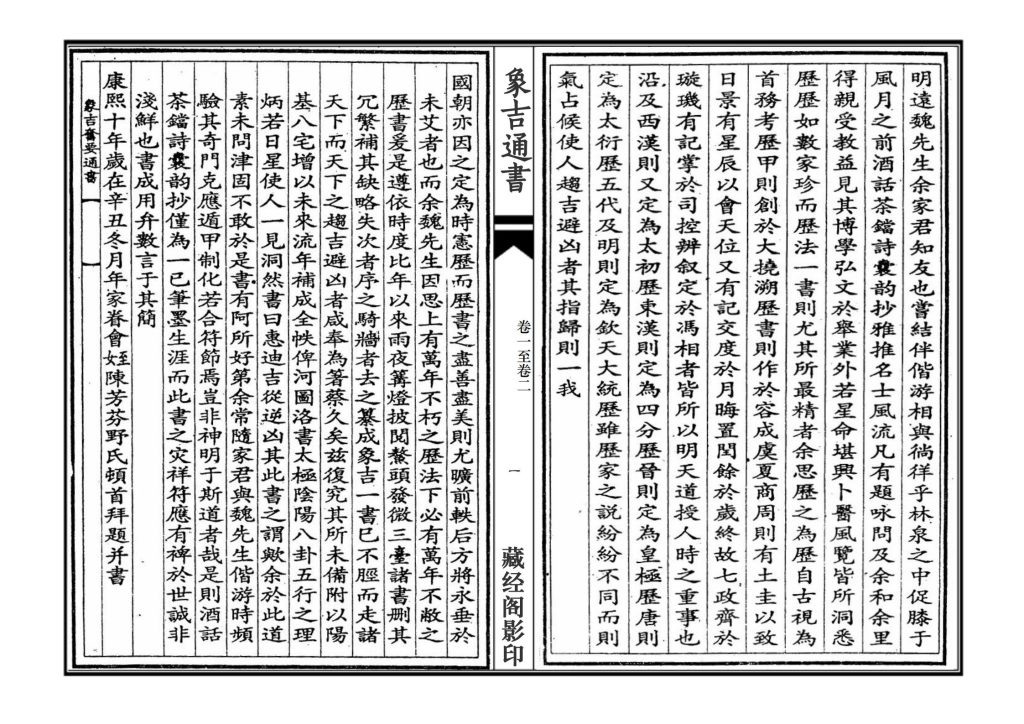 明遠魏先生余家君知友也嘗結伴偕游相與徜徉乎林泉之中促膝于
風月之前酒話茶鐺詩囊韵抄雅推名士風流凡有題咏問及余和余里
得親受教益見其博學弘文於舉業外若星命堪輿卜醫風覽皆所洞悉
歷歷如數家珍而歷法一書則尤其所最精者余思歷之為歷自古視為
首務考歷甲則創於大撓溯歷書則作於容成虞夏商周則有土圭以致
日景有星辰以會天位又有記交度於月晦置閏餘於歲終故七政齊於
璇璣有記掌於司控辨叙定於馮相者皆所以明天道授人時之重事也
沿及西漢則又定為太初歷東漢則定為四分歷晉則定為皇極歷唐則
定為太衍歷五代及明則定為欽天大統歷雖歷家之説紛紛不同而則
氣占候使人趨吉避凶者其指歸則一我
象吉通書
卷一至卷二
一
藏经阁影印
國朝亦因之定為時憲歷而歷書之盡善盡美則尤曠前軼后方將永垂於
未艾者也而余魏先生因思上有萬年不朽之歷法下必有萬年不敝之
歷書爰是遵依時度比年以來雨夜篝燈披閱鰲頭發微三臺諸書删其
冗繁補其缺略失次者序之騎牆者去之纂成象吉一書已不脛而走諸
天下而天下之趨吉避凶者咸奉為蓍蔡久矣茲復究其所未備附以陽
基八宅增以未來流年補成全帙俾河圖洛書太極陰陽八卦五行之理
炳若日星使人一見洞然書曰惠迪吉從逆凶其此書之謂歟余於此道
素未問津固不敢於是書有阿所好第余常隨家君與魏先生偕游時頻
驗其奇門克應遁甲制化若合符節焉豈非神明于斯道者哉是則酒話
茶鐺詩囊韵抄僅為一已筆墨生涯而此書之灾祥符應有裨於世誠非
淺鮮也書成用弁數言于其簡
康熙十年歲在辛丑冬月年家眷會姪陳芳芬野氏頓首拜題并書
象吉備要通書
一